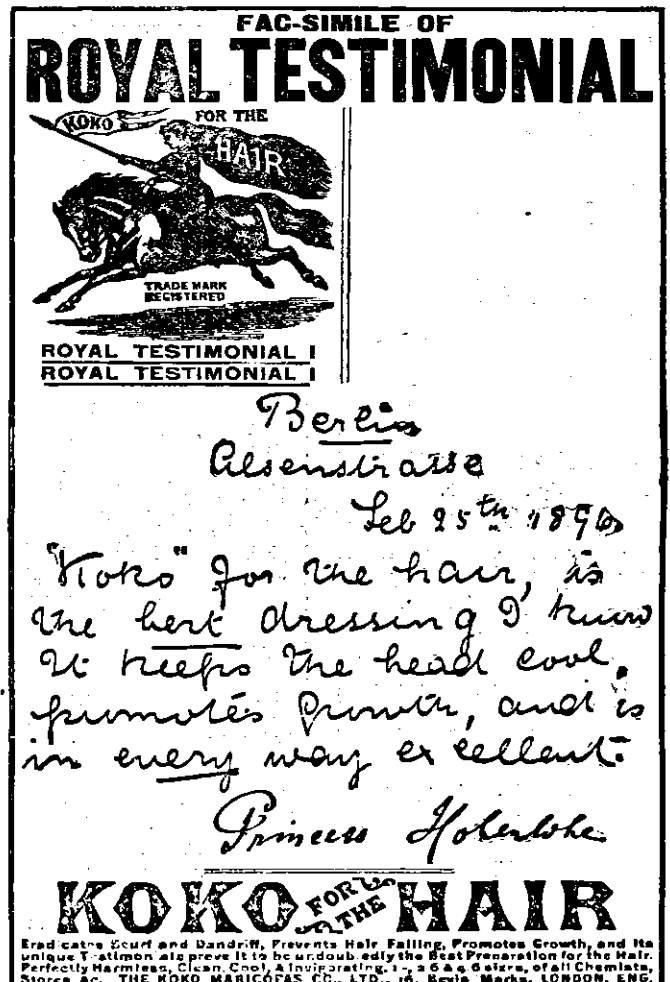 FAC-SIMILE OF
ROYAL TESTIMONIAL
KOKO FOR THE
HAIR
TRADE MARK
REGISTERED
ROYAL TESTIMONIAL !
ROYAL TESTIMONIAL !
Berlin
Alsenstrasse
Feb 25th 1896
"Koko" for the hair, is
the best dressing I know
It keeps the head cool,
promotes growth, and is
in every way excellent.
Princess Hohenlohe
KOKO FOR THE HAIR
Eradicates Scurf and Dandriff, Prevents Hair Falling, Promotes Growth, and its
unique Testimonials prove it to be undoubtedly the Best Preparation for the Hair.
Perfectly Harmless, Clean, Cool, & Invigorating. 1/-, 2/6 & 4/6 sizes, of all Chemists,
Stores &c. THE KOKO MARICOPAS CO., LTD., 16, Bevis Marks, LONDON, ENG.